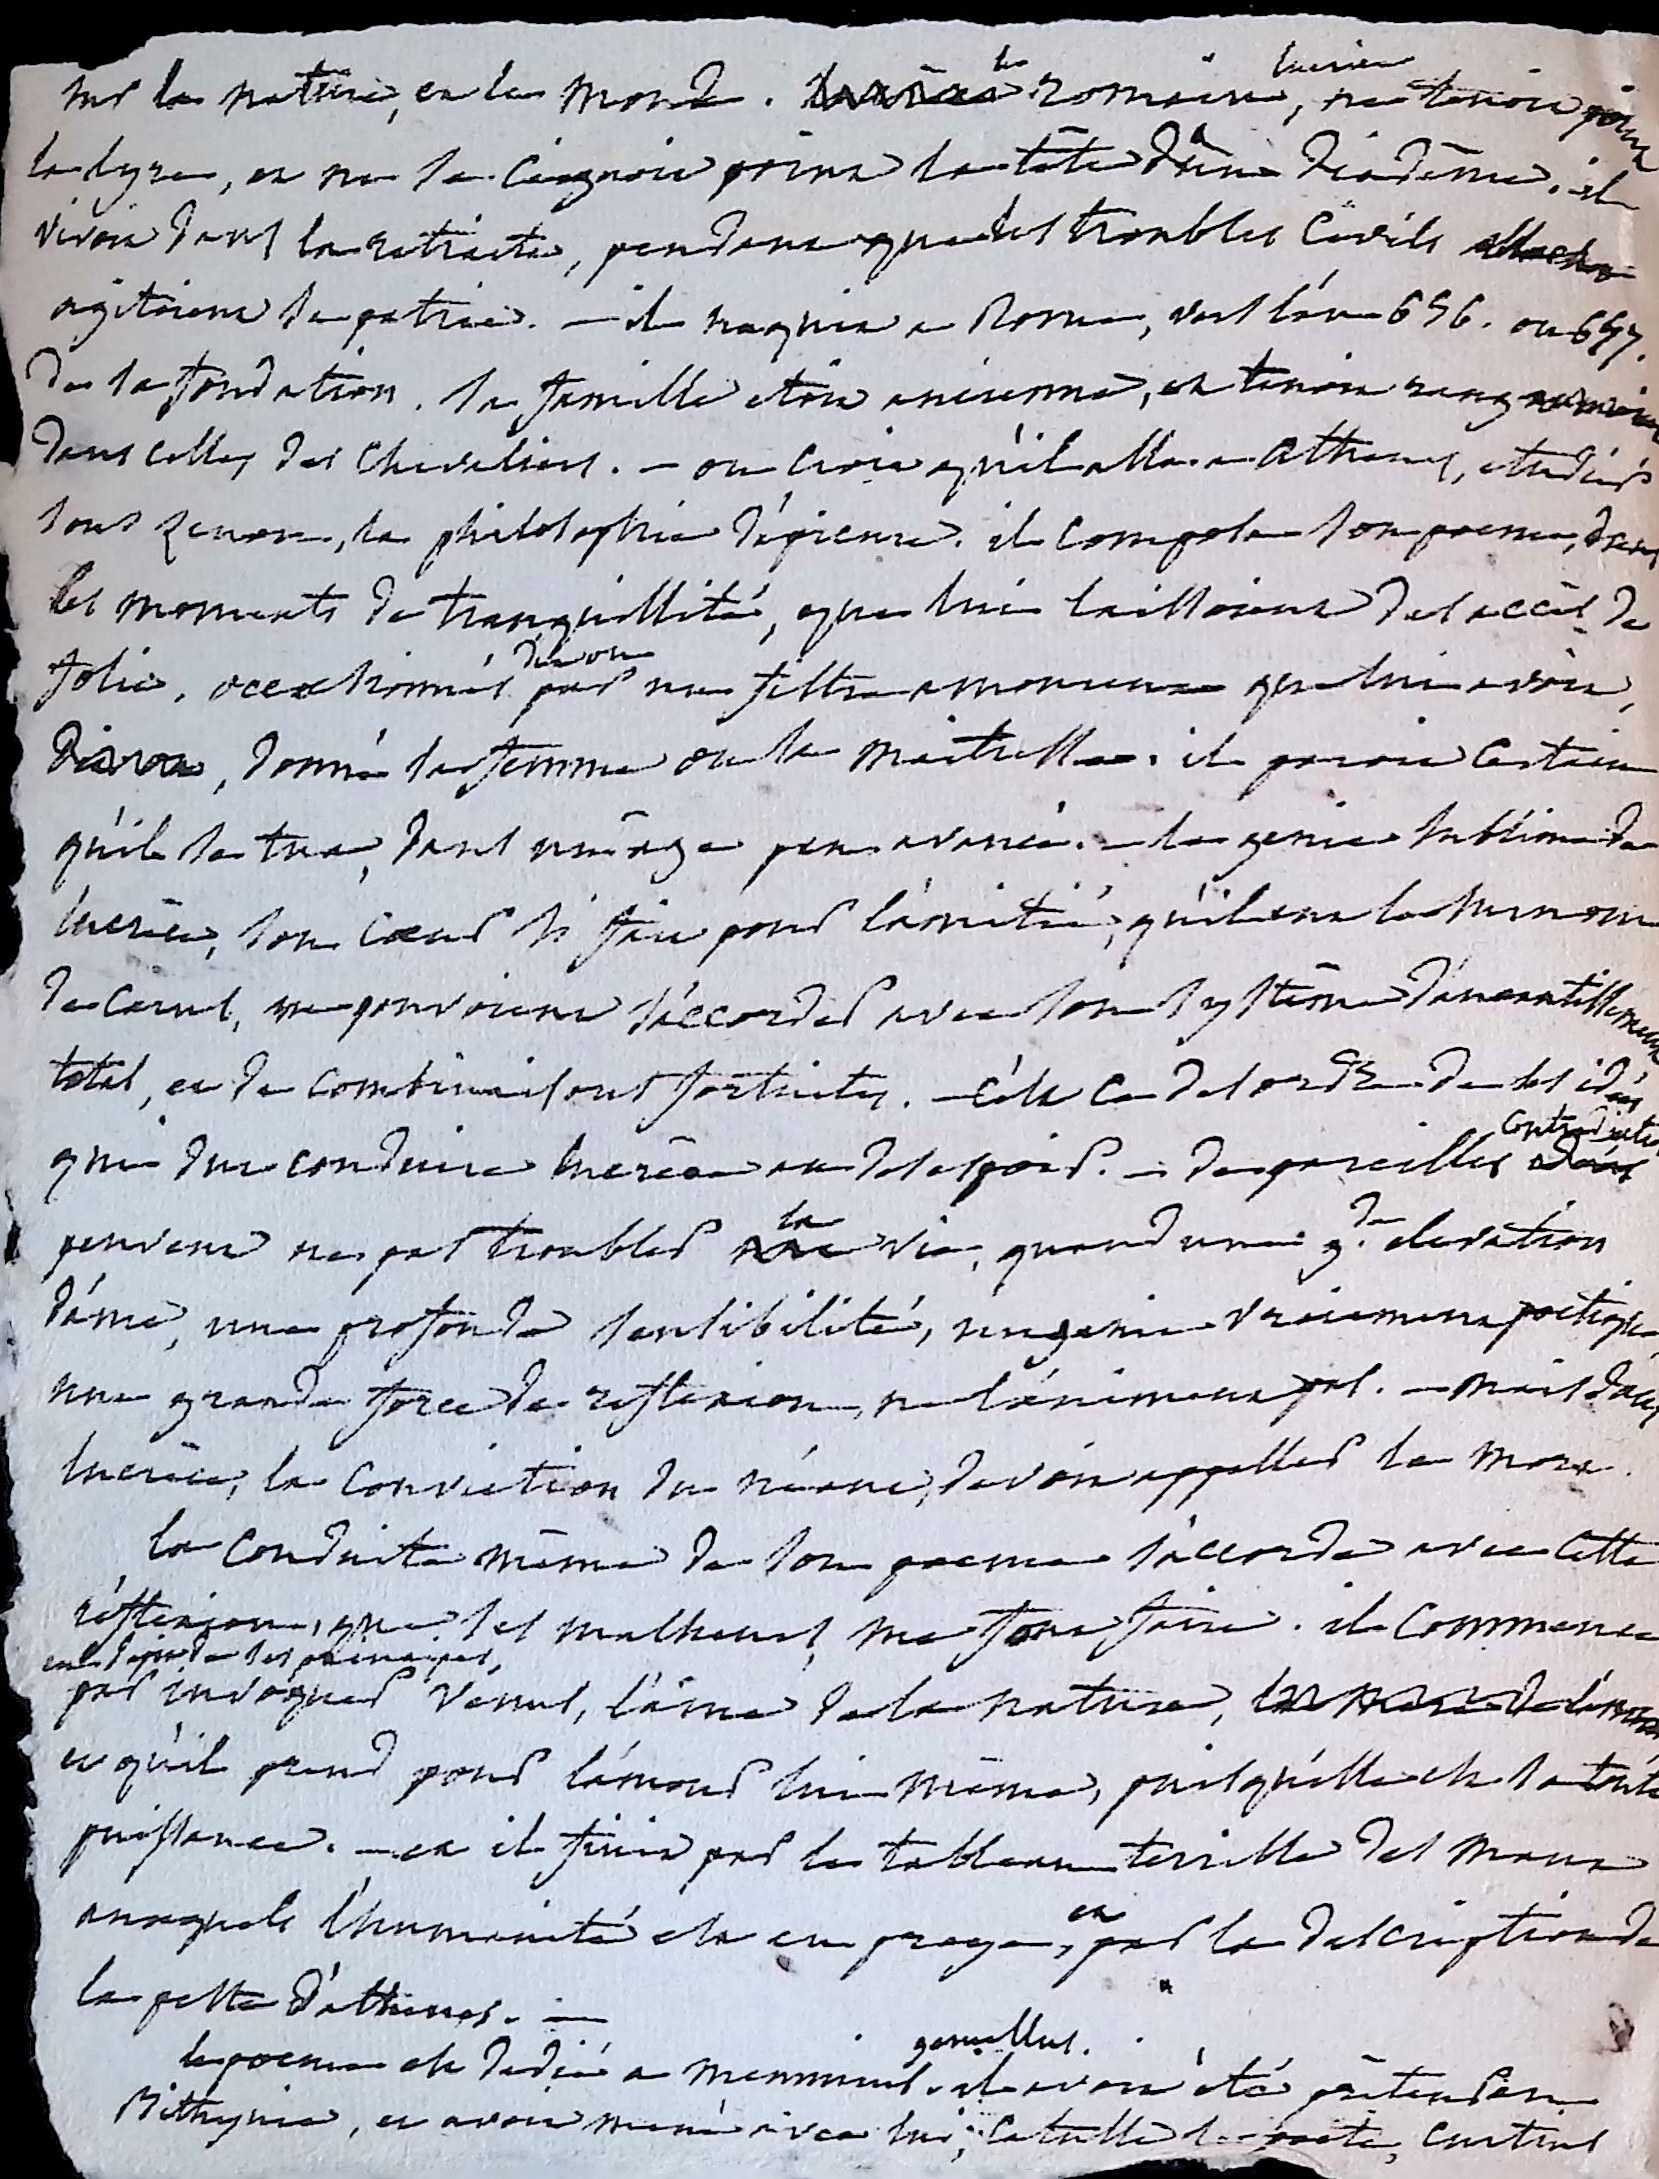 sur la nature, et le monde. le romain lucrèce, ne tenoit point
la lyre, et ne se ceignoit point la tête d'un diadême. il
vivoit dans la retraite, pendant que des troubles civils
agitoient sa patrie. — il naquit a Rome, vers l'an 656. ou 657.
de sa fondation. sa famille etoit ancienne, et tenoit rang
dans celles des chevaliers. — on croit qu'il alla a Athenes, etudier
sous Zenon, la philosophie d'épicure. il composa son poeme, dans
les moments de tranquillité, que lui laissoient des accès de
folie, occasionnés dit on par un filtre amoureux que lui avoit,
donné sa femme ou sa maitresse. il paroit certain
qu'il se tua, dans un âge peu avancé. — le genie sublime de
lucrèce, son coeur si fait pour l'amitié, qu'il eut le surnom
de carus, ne pouvoient s'accorder avec son systême d'aneantissement
total, et de combinaisons fortuites. — c'est ce desordre de ses idées
qui dut conduire lucrèce au desespoir. — de pareilles contradictions
peuvent ne pas troubler la vie, quand une gde elevation
d'ame, une profonde sensibilité, un genie vraiement poetique,
une grande force de reflexion, ne l'animent pas. — mais dans
lucrèce, la conviction du néant, devoit appeller la mort.
la conduite même de son poeme s'accorde avec cette
réflexion, que ses malheurs me font faire. il commence
en depit de ses principes,
par invoquer Venus, l'ame de la nature,
et qu'il prend pour l'amour lui même, puisqu'elle est sa toute
puissance. — et il finit par le tableau terrible des maux
auxquels l'humanité est en proye, et par la description de
la peste d'athenes. —
le poeme est dedié a Memmius gemellus. il avoit été préteur en
Bithynie, et avoit mené avec lui, Catulle le poete, curtius